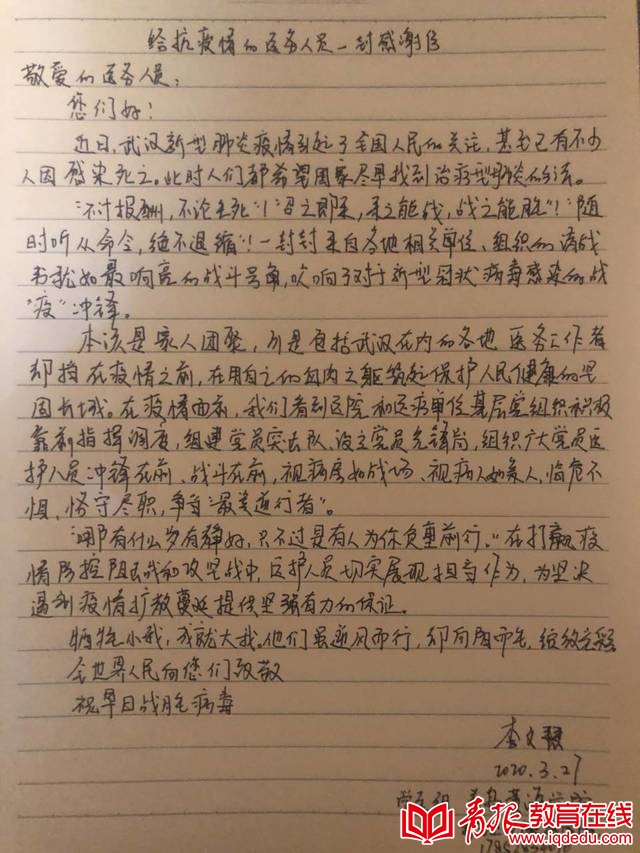 给抗疫情的医务人员一封感谢信
敬爱的医务人员:
您们好!
近日,武汉新型肺炎疫情引起了全国人民的关注,甚至已有不少
人因感染死亡。此时人们都希望国家尽早找到治疗型肺炎的方法。
“不计报酬,不论生死”!“召之即来,来之能战,战之能胜”!“随
时听从命令,绝不退缩”!一封封来自各地相关单位、组织的请战
书犹如最响亮的战斗号角,吹响了对于新型冠状病毒感染的战
“疫”冲锋。
本该是家人团聚,可是包括武汉在内的各地医务工作者
却挡在疫情之前,在用自己的血肉之躯筑起保护人民健康的坚
固长城。在疫情面前,我们看到医院和医疗单位基层党组织积极
靠前指挥调度,组建党员突击队、设立党员先锋岗,组织广大党员医
护人员冲锋在前、战斗在前,视病房如战场、视病人如亲人,临危不
惧,恪守尽职,争当“最美逆行者”。
“哪有什么岁月静好,只不过是有人为你负重前行。”在打赢疫
情防控阻击战和攻坚战中,医护人员切实展现担当作为,为坚决
遏制疫情扩散蔓延提供坚强有力的保证。
牺牲小我,成就大我。他们虽逆风而行,却向阳而生,绽放
全世界人民向您们致敬
祝早日战胜病毒
李文
2020.3.27
青报教育在线
www.iqdedu.com